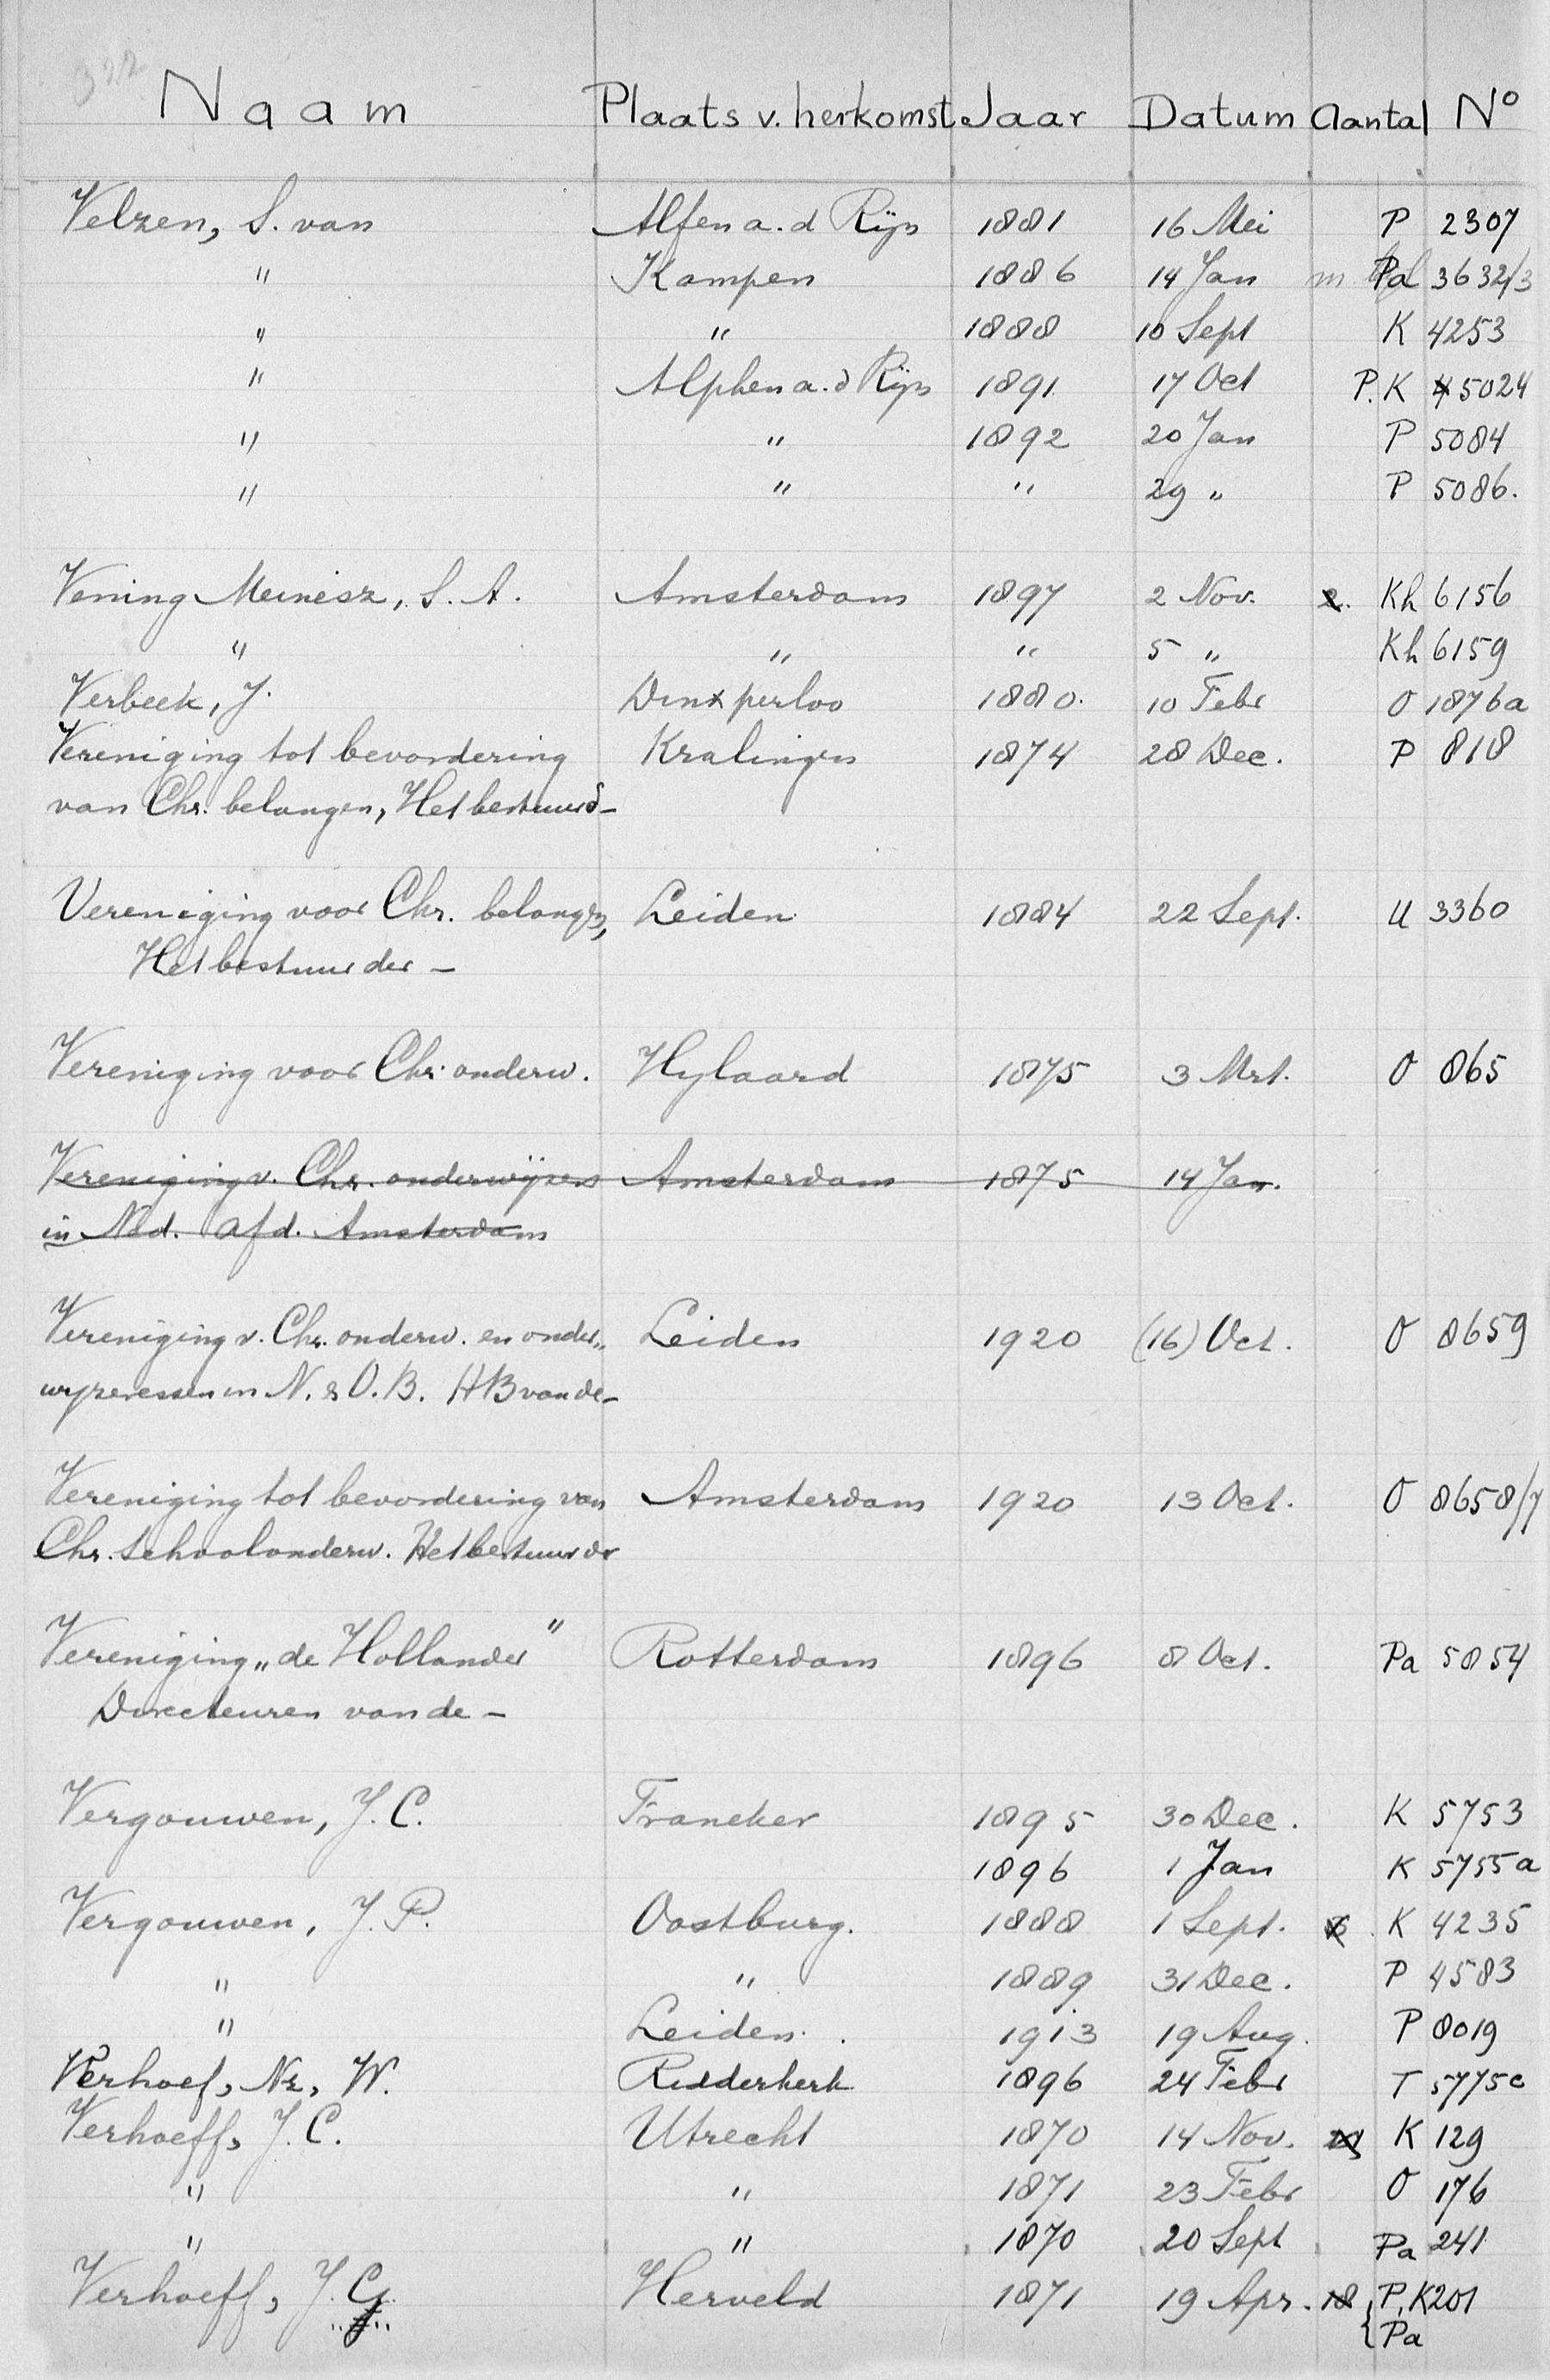 322
Naam Plaats v. herkomst Jaar Datum Aantal No
Velzen, S. van Alfen a. d Rijn 1881 16 Mei P 2307
" Kampen 1886 14 Jan m Pa 3632/3
" " 1888 10 Sept K 4253
" Alphen a. d Rijn 1891 17 Oct P. K 5024
" " 1892 20 Jan P 5084
" " " 29 " P 5086.
Vening Meinesz, S. A. Amsterdam 1897 2 Nov. 2. Kh 6156
" " " 5 " Kh 6159
Verbeek, J. Dinxperloo 1880. 10 Febr O 1876a
Vereniging tot bevordering Kralingen 1874 28 Dec. P 818
van Chr. belangen, Het bestuur d-
Vereniging voor Chr. belangen, Leiden 1884 22 Sept. U 3360
Het bestuur der -
Vereniging voor Chr. onderw. Hylaard 1875 3 Mrt. O 865
Vereniging v. Chr. onderwijzers Amsterdam 1875 14 Jan.
in Ned. Afd. Amsterdam
Vereniging v. Chr. onderw. en onder„ Leiden 1920 (16) Oct. O 8659
wyzeressen in N. & O. B. HB van de-
Vereniging tot bevordering van Amsterdam 1920 13 Oct. O 8658/7
Chr. schoolonderw. Het bestuur dr
Vereniging „de Hollander" Rotterdam 1896 8 Oct. Pa 5854
Directeuren van de -
Vergouwen, J. C. Franeker 1895 30 Dec. K 5753
1896 1 Jan K 5755a
Vergouwen, J. P. Oostburg. 1888 1 Sept. K 4235
" " 1889 31 Dec. P 4583
" Leiden. 1913 19 Aug. P 8019
Verhoef, Nz, W. Ridderkerk 1896 24 Febr T 5775c
Verhoeff, J. C. Utrecht 1870 14 Nov. K 129
" " 1871 23 Febr O 176
" " 1870 20 Sept Pa 241
Verhoeff, J. G. Herveld 1871 19 Apr. 18 { P, K 201
Pa